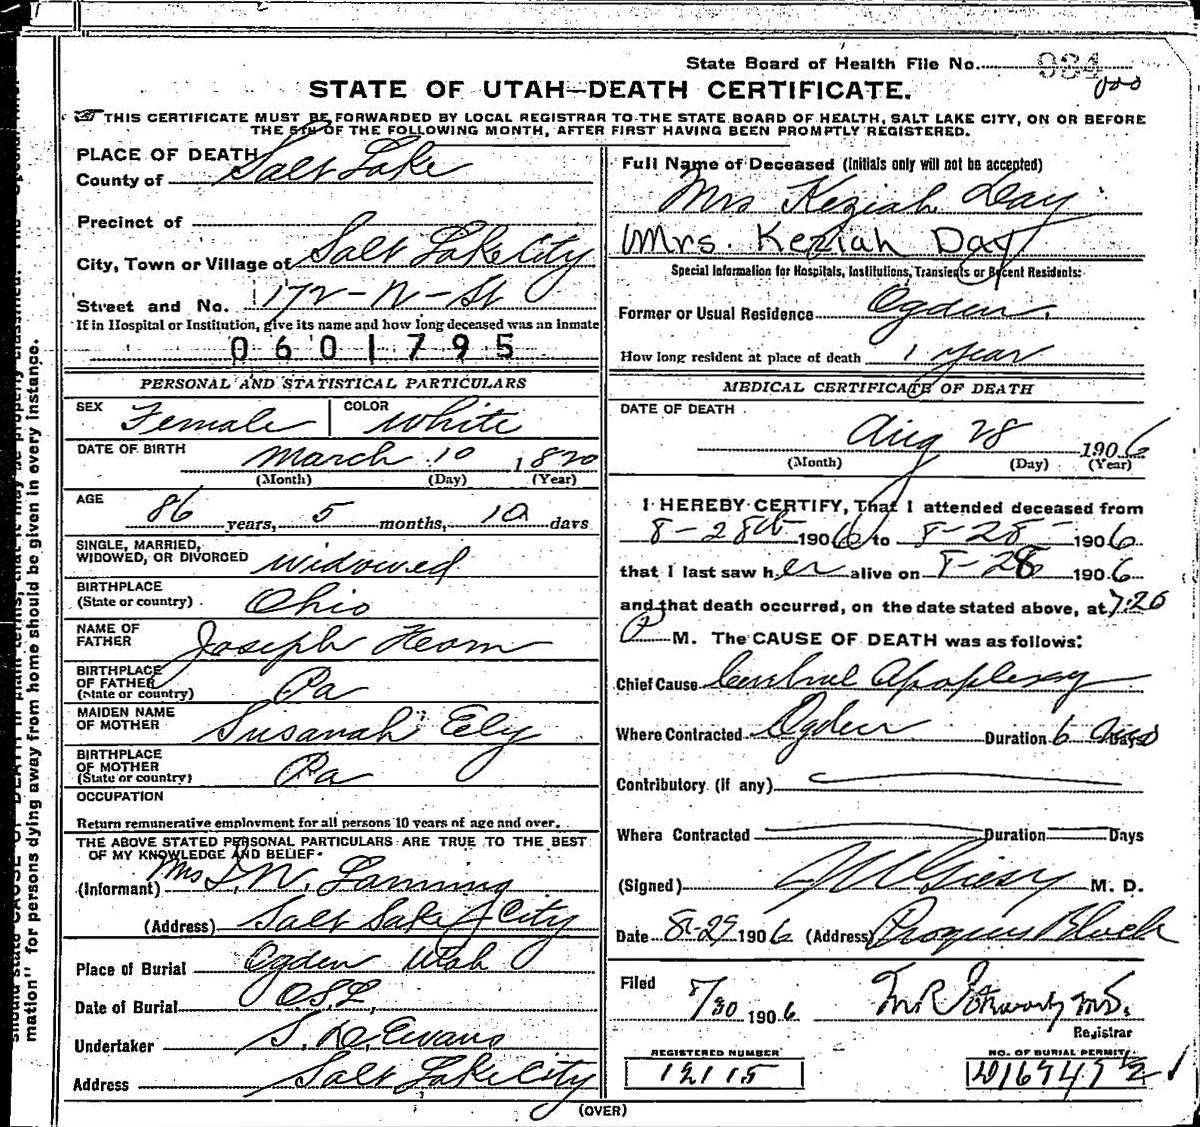 State Board of Health File No. 984
000
STATE OF UTAH—DEATH CERTIFICATE.
THIS CERTIFICATE MUST BE FORWARDED BY LOCAL REGISTRAR TO THE STATE BOARD OF HEALTH, SALT LAKE CITY, ON OR BEFORE
THE 5TH OF THE FOLLOWING MONTH, AFTER FIRST HAVING BEEN PROMPTLY REGISTERED.
PLACE OF DEATH
County of Salt Lake
Precinct of
City, Town or Village of Salt Lake City
Street and No. 172-N-St
If in Hospital or Institution, give its name and how long deceased was an inmate
0601795
PERSONAL AND STATISTICAL PARTICULARS
SEX Female COLOR White
DATE OF BIRTH March 10 1820
(Month) (Day) (Year)
AGE
86 years, 5 months, 10 days
SINGLE, MARRIED,
WIDOWED, OR DIVORCED Widowed
BIRTHPLACE
(State or country) Ohio
NAME OF
FATHER Joseph
BIRTHPLACE
OF FATHER
(State or country) Pa
MAIDEN NAME
OF MOTHER Susanah Ely
BIRTHPLACE
OF MOTHER
(State or country) Pa
OCCUPATION
Return remunerative employment for all persons 10 years of age and over.
THE ABOVE STATED PERSONAL PARTICULARS ARE TRUE TO THE BEST
OF MY KNOWLEDGE AND BELIEF
(Informant) Mrs W. Lanning
(Address) Salt Lake City
Place of Burial Ogden Utah
Date of Burial O.S.L.
Undertaker Evans
Address Salt Lake City
Full Name of Deceased (Initials only will not be accepted)
Mrs Keziah Day
Mrs. Keziah Day
Special Information for Hospitals, Institutions, Transients or Recent Residents:
Former or Usual Residence Ogden.
How long resident at place of death 1 year
MEDICAL CERTIFICATE OF DEATH
DATE OF DEATH
Aug 28 1906
(Month) (Day) (Year)
I HEREBY CERTIFY, That I attended deceased from
8-28th 1906 to 8-28- 1906
that I last saw her alive on 8-28 1906
and that death occurred, on the date stated above, at 7:20
P M. The CAUSE OF DEATH was as follows:
Chief Cause Cerebral Apoplexy
Where Contracted Ogden Duration 6 Days
Contributory (if any)
Where Contracted Duration Days
(Signed) Giesy M. D.
Date 8-29 1906 (Address) Progress Block
Filed
8/30 1906
Registrar
REGISTERED NUMBER
12115
NO. OF BURIAL PERMIT
(OVER)
mation" for persons dying away from home should be given in every instance.